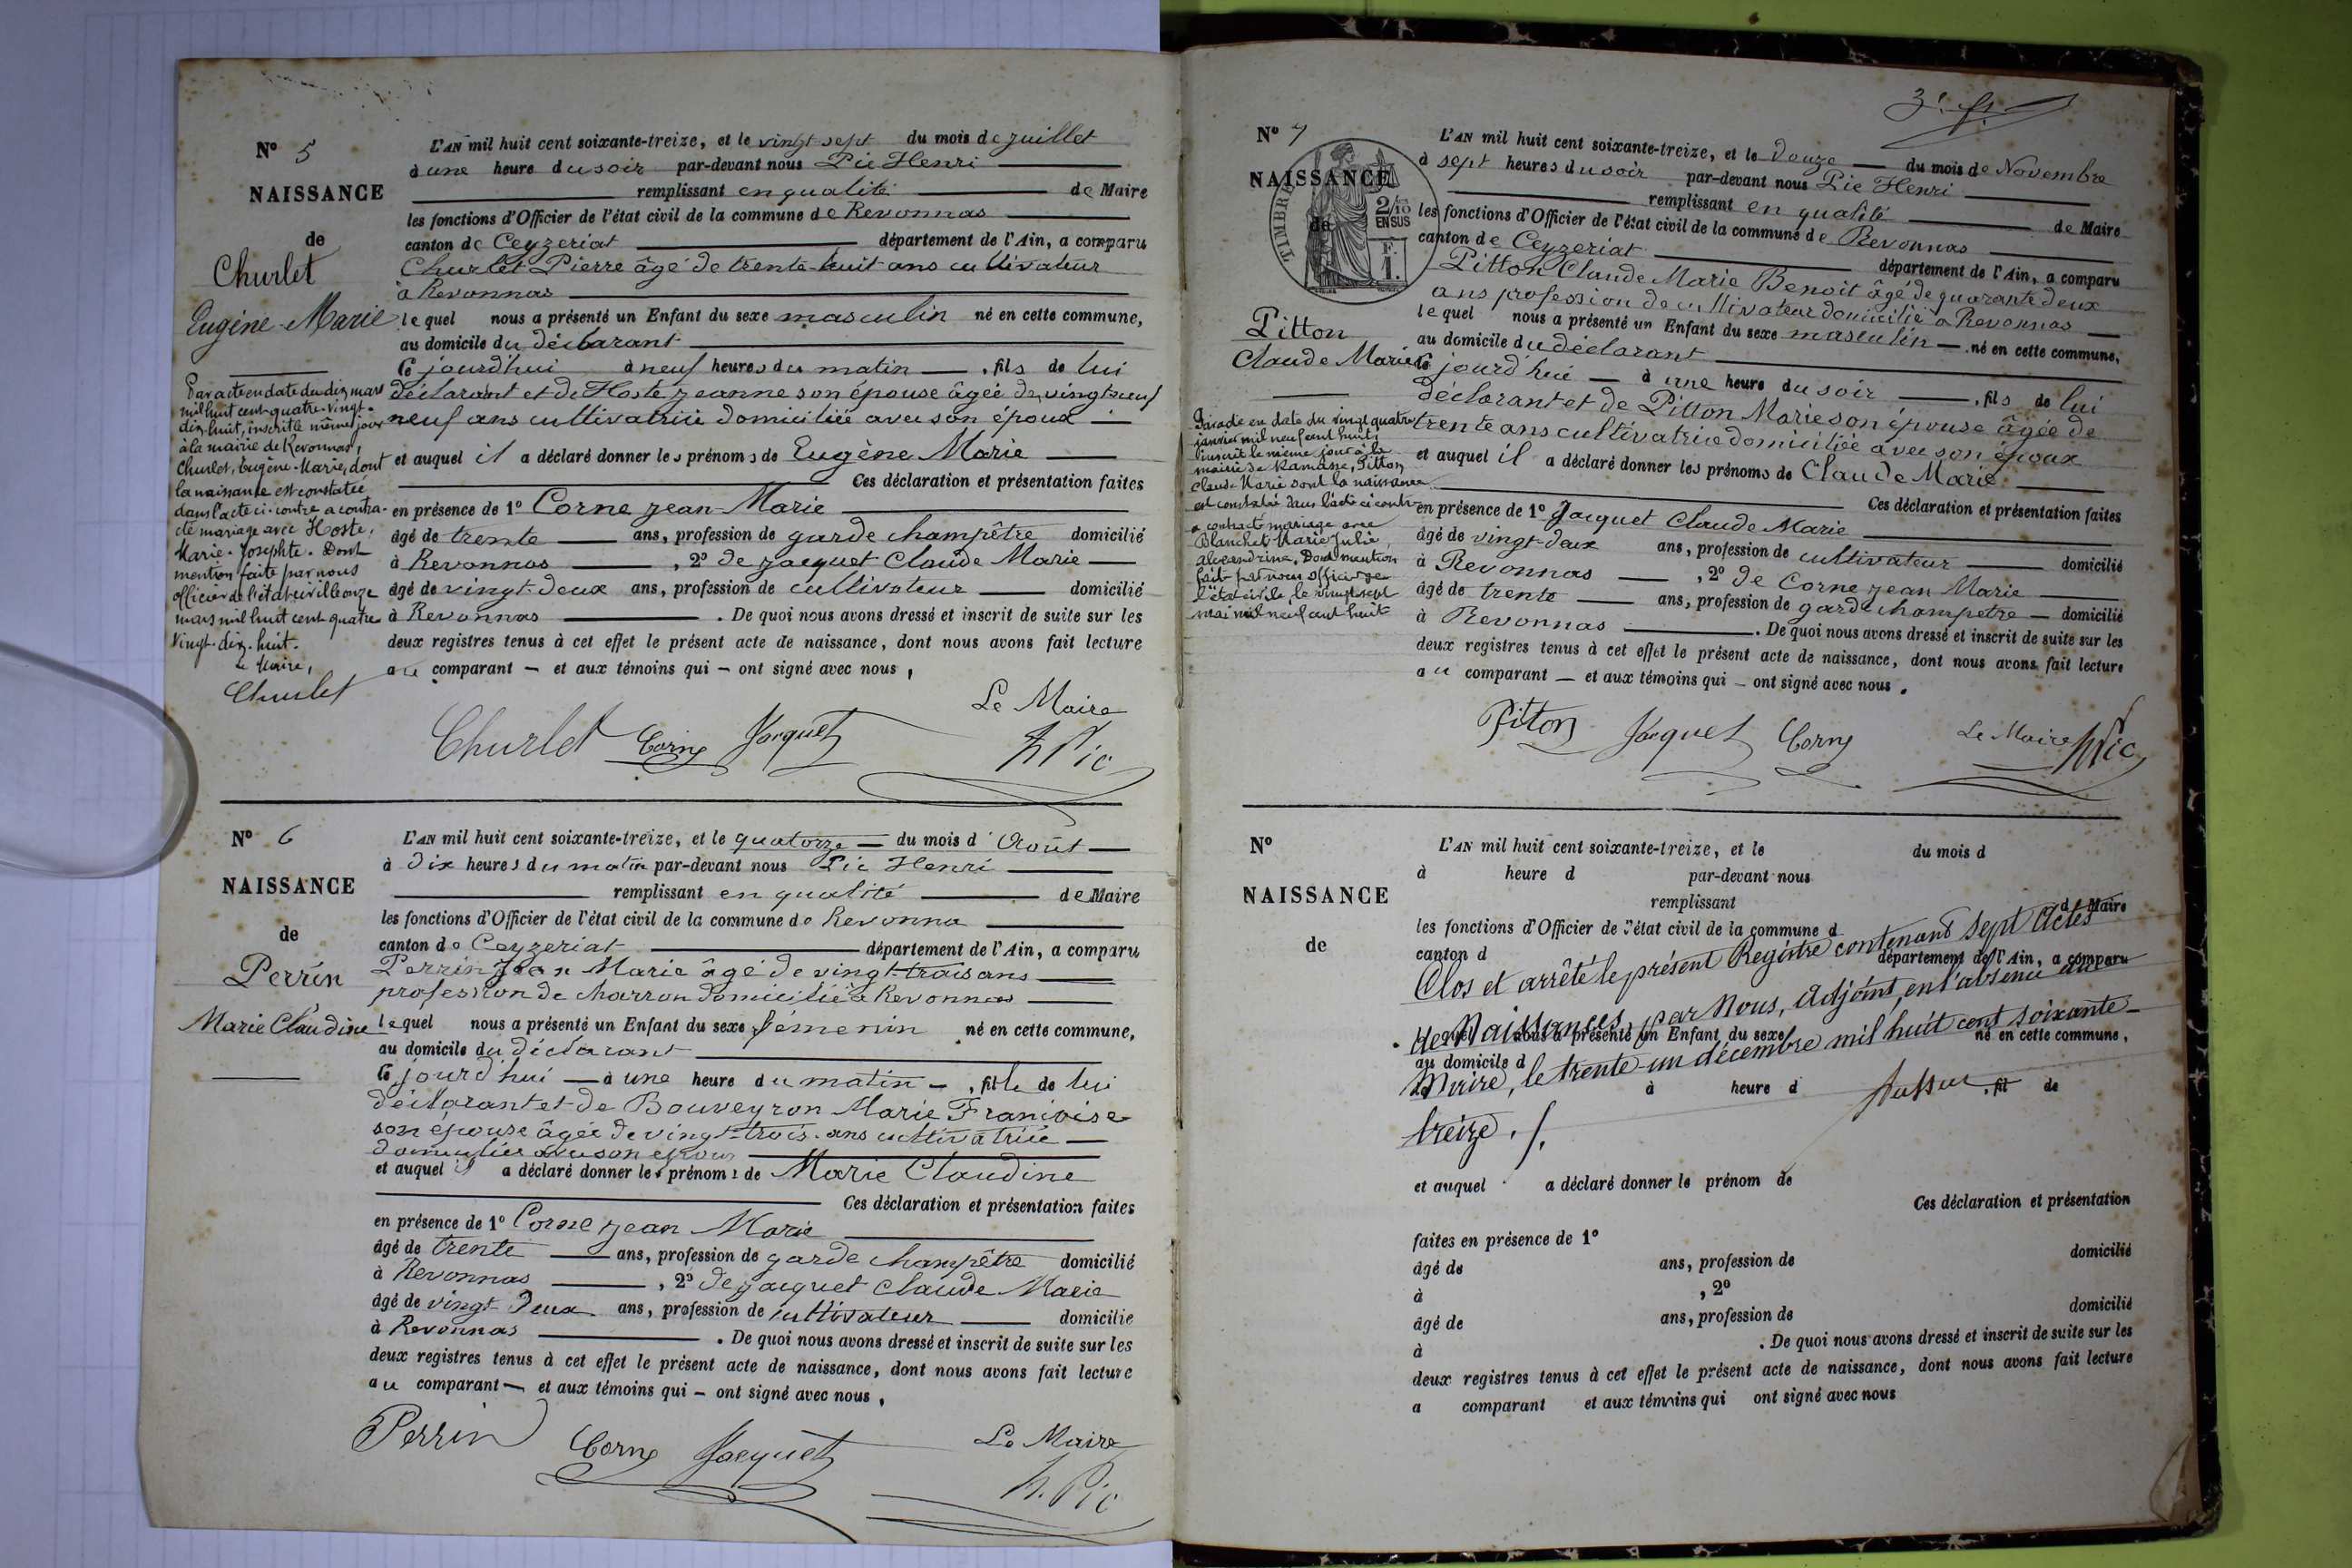 N° 5
NAISSANCE
de
Churlet
Eugène Marie
Par acte en date du dix mars
mil huit cent quatre-vingt-
dix-huit, inscrit le même jour
à la mairie de Revonnas,
Churlet, Eugène-Marie, dont
la naissance est constatée
dans l'acte ci-contre a contra-
cté mariage avec Hoste,
Marie-Josephte. Dont
mention faite par nous
officier de l'état civil le onze
mars mil huit cent quatre
vingt-dix-huit.
Le Maire,
Churlet
L'AN mil huit cent soixante-treize, et le vingt sept du mois de juillet
à une heure du soir par-devant nous Pic Henri
remplissant en qualité de Maire
les fonctions d'Officier de l'état civil de la commune de Revonnas
canton de Ceyzeriat département de l'Ain, a comparu
Churlet Pierre âgé de trente-huit ans cultivateur
à Revonnas
lequel nous a présenté un Enfant du sexe masculin né en cette commune,
au domicile du déclarant
Ce jourd'hui à neuf heures du matin , fils de lui
déclarant et de Hoste jeanne son épouse âgée de vingt neuf
neuf ans cultivatrice domiciliée avec son époux
et auquel il a déclaré donner les prénoms de Eugène Marie
Ces déclaration et présentation faites
en présence de 1° Corne jean-Marie
âgé de trente ans, profession de garde champêtre domicilié
à Revonnas , 2° de jacquet Claude Marie
âgé de vingt-deux ans, profession de cultivateur domicilié
à Revonnas . De quoi nous avons dressé et inscrit de suite sur les
deux registres tenus à cet effet le présent acte de naissance, dont nous avons fait lecture
au comparant – et aux témoins qui – ont signé avec nous,
Le Maire
Churlet Corne Jacquet H Pic
N° 6
NAISSANCE
de
Perrin
Marie Claudine
L'AN mil huit cent soixante-treize, et le quatorze du mois d'Août
à Dix heures du matin par-devant nous Pic Henri
remplissant en qualité de Maire
les fonctions d'Officier de l'état civil de la commune de Revonna
canton de Ceyzeriat département de l'Ain, a comparu
Perrin Jean Marie âgé de vingt-trois ans
profession de charron domicilié à Revonnas
lequel nous a présenté un Enfant du sexe fémenin né en cette commune,
au domicile du déclarant
Ce jourd'hui – à une heure du matin – , fille de lui
déclarant et de Bouveyron Marie Françoise
son épouse âgée de vingt-trois ans cultivatrice
domiciliée avec son époux
et auquel il a déclaré donner les prénoms de Marie Claudine
Ces déclaration et présentation faites
en présence de 1° Corne jean Marie
âgé de trente ans, profession de garde champêtre domicilié
à Revonnas , 2° de jacquet Claude Marie
âgé de vingt Deux ans, profession de cultivateur domicilié
à Revonnas . De quoi nous avons dressé et inscrit de suite sur les
deux registres tenus à cet effet le présent acte de naissance, dont nous avons fait lecture
au comparant – et aux témoins qui – ont signé avec nous,
Perrin Corne Jacquet Le Maire
H. Pic
N° 7
NAISSANCE
de
TIMBRE
2/10
EN SUS
1 F.
Pitton
Claude Marie
Par acte en date du vingt quatre
janvier mil neuf cent huit,
inscrit le même jour à la
mairie de Ramasse, Pitton
Claude Marie dont la naissance
est constatée dans l'acte ci-contre
a contracté mariage avec
Blanchet Marie Julie,
Alexandrine, Dont mention
faite par nous officier de
l'état civil, le vingt sept
mai mil neuf cent huit
L'AN mil huit cent soixante-treize, et le Douze du mois de Novembre
à sept heures du soir par-devant nous Pic Henri
remplissant en qualité de Maire
les fonctions d'Officier de l'état civil de la commune de Revonnas
canton de Ceyzeriat département de l'Ain, a comparu
Pitton Claude Marie Benoit âgé de quarante deux
ans profession de cultivateur domicilié a Revonnas
lequel nous a présenté un Enfant du sexe masculin – né en cette commune,
au domicile du déclarant
Ce jourd'hui – à une heure du soir , fils de lui
déclarant et de Pitton Marie son épouse âgée de
trente ans cultivatrice domiciliée avec son époux
et auquel il a déclaré donner les prénoms de Claude Marie
Ces déclaration et présentation faites
en présence de 1° Jacquet Claude Marie
âgé de vingt-deux ans, profession de cultivateur domicilié
à Revonnas , 2° de Corne jean Marie
âgé de trente ans, profession de garde champetre – domicilié
à Revonnas . De quoi nous avons dressé et inscrit de suite sur les
deux registres tenus à cet effet le présent acte de naissance, dont nous avons fait lecture
au comparant – et aux témoins qui – ont signé avec nous.
Piton Jacquet Corne Le Maire H Pic
N°
NAISSANCE
de
L'AN mil huit cent soixante-treize, et le du mois d
à heure d par-devant nous
remplissant d Maire
les fonctions d'Officier de l'état civil de la commune d
canton d département de l'Ain, a comparu
Clos et arrêté le présent Registre contenant sept Actes
de Naissances, par Nous, Adjoint, en l'absence du
lequel nous a présenté un Enfant du sexe né en cette commune,
au domicile d
Maire, le trente-un décembre mil huit cent soixante-
à heure d , fil de
treize ./.
et auquel a déclaré donner le prénom de
Ces déclaration et présentation
faites en présence de 1°
âgé de ans, profession de domicilié
à , 2°
âgé de ans, profession de domicilié
à . De quoi nous avons dressé et inscrit de suite sur les
deux registres tenus à cet effet le présent acte de naissance, dont nous avons fait lecture
a comparant et aux témoins qui ont signé avec nous